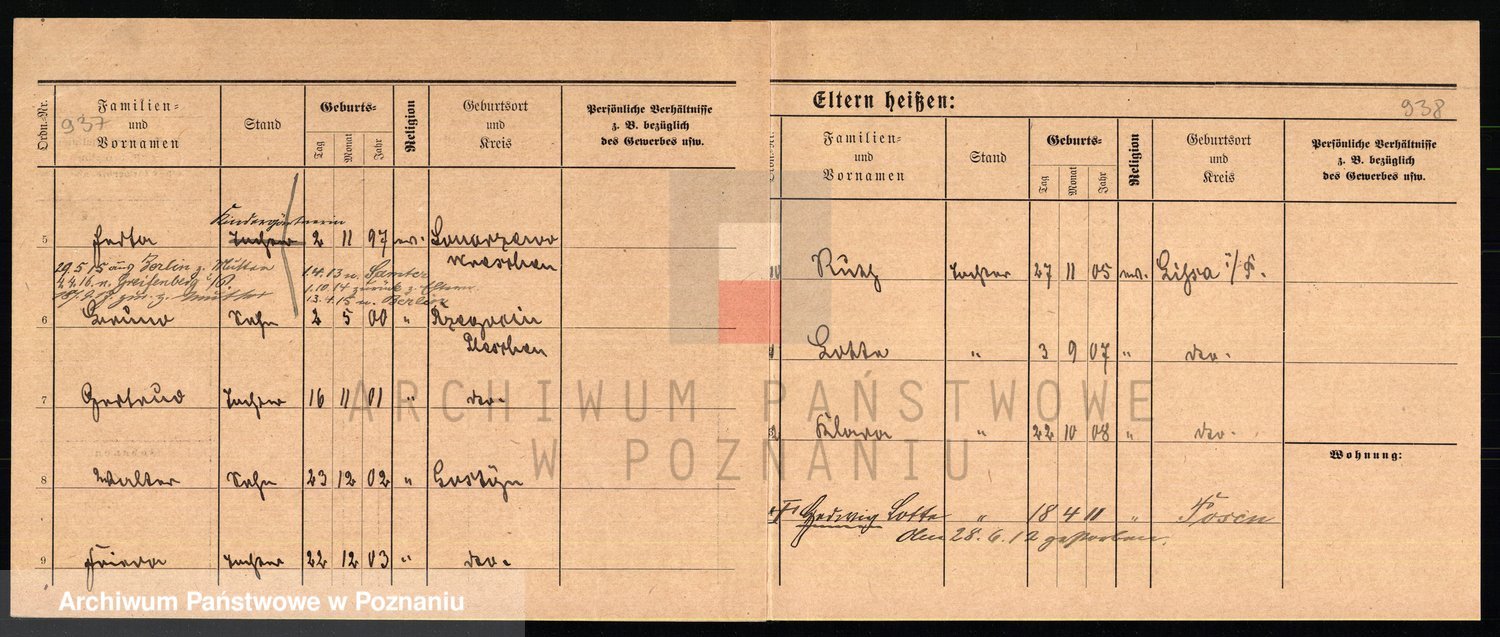 937
Ordn.-Nr.
Familien-
und
Vornamen
Stand
Geburts-
Tag
Monat
Jahr
Religion
Geburtsort
und
Kreis
Persönliche Verhältnisse
z. B. bezüglich
des Gewerbes usw.
Kindergärtnerin
5 Herta Tochter 2 11 97 ev.
Wreschen
29.5.15 aus Berlin z. Mutter
4.4.16. n. Greifenberg
z. Mutter
1.4.13 n. Samter
1.10.14 zurück z. Eltern
13.4.15 n. Berlin
6 Bruno Sohn 2 5 00 "
Pleschen
7 Gertrud Tochter 16 11 01 " do.
8 Walter Sohn 23 12 02 " Gostyn
9 Frieda Tochter 22 12 03 " do.
Eltern heißen:
938
Familien-
und
Vornamen
Stand
Geburts-
Tag
Monat
Jahr
Religion
Geburtsort
und
Kreis
Persönliche Verhältnisse
z. B. bezüglich
des Gewerbes usw.
10 Ruth Tochter 27 11 05 ev. Lissa i/P.
Lotte " 3 9 07 " do.
Klara " 22 10 08 " do.
Wohnung:
Hedwig Lotte " 18 4 11 " Posen
den 28.6.12 gestorben.
ARCHIWUM PAŃSTWOWE
W POZNANIU
Archiwum Państwowe w Poznaniu